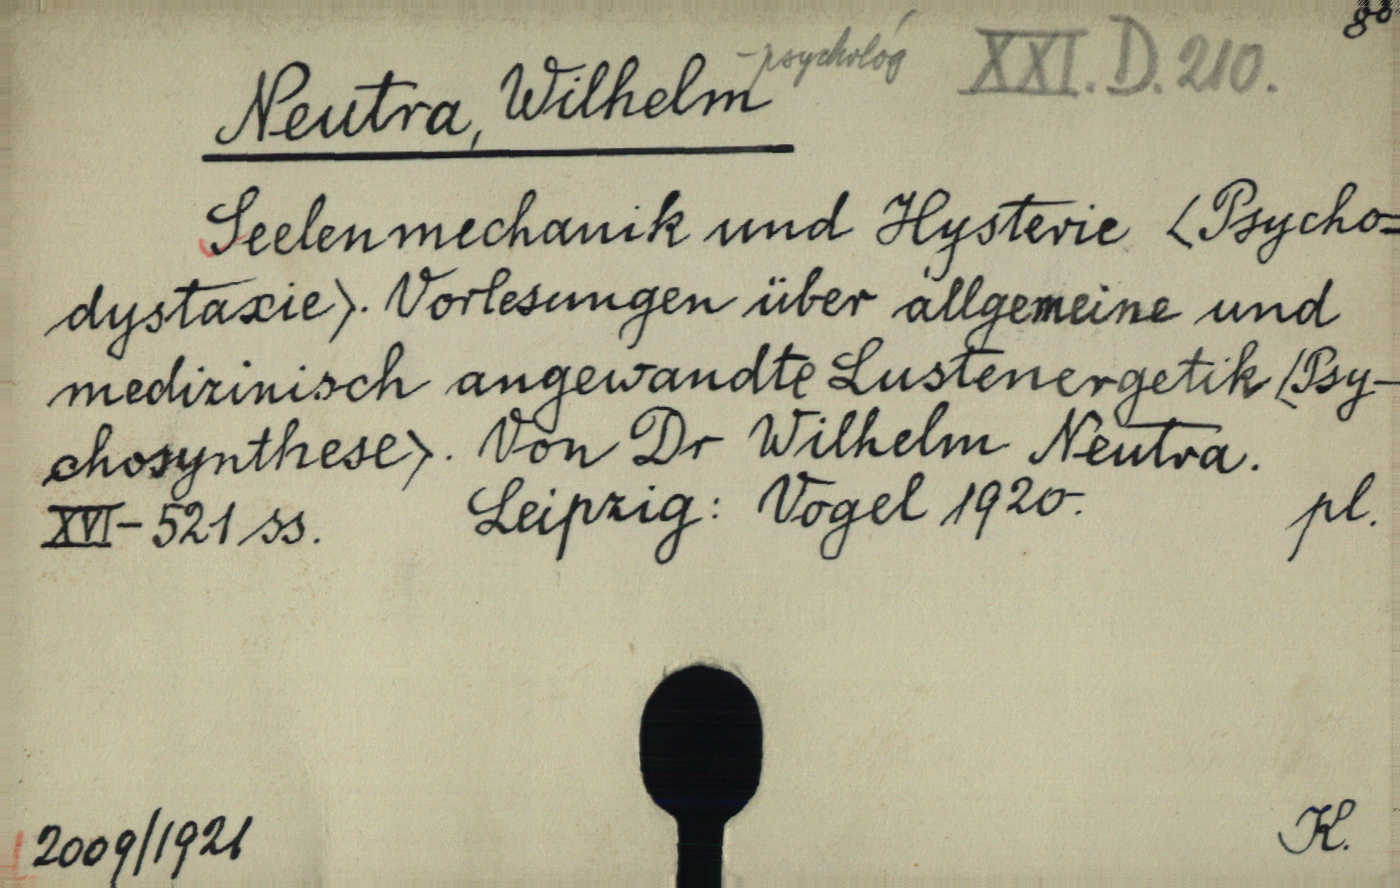 8°
Neutra, Wilhelm - psychológ XXI. D. 210.
Seelenmechanik und Hysterie <Psycho-
dystaxie>. Vorlesungen über allgemeine und
medizinisch angewandte Lustenergetik <Psy-
chosynthese>. Von Dr Wilhelm Neutra.
XVI-521 ss. Leipzig: Vogel 1920. pl.
2009/1921 K.